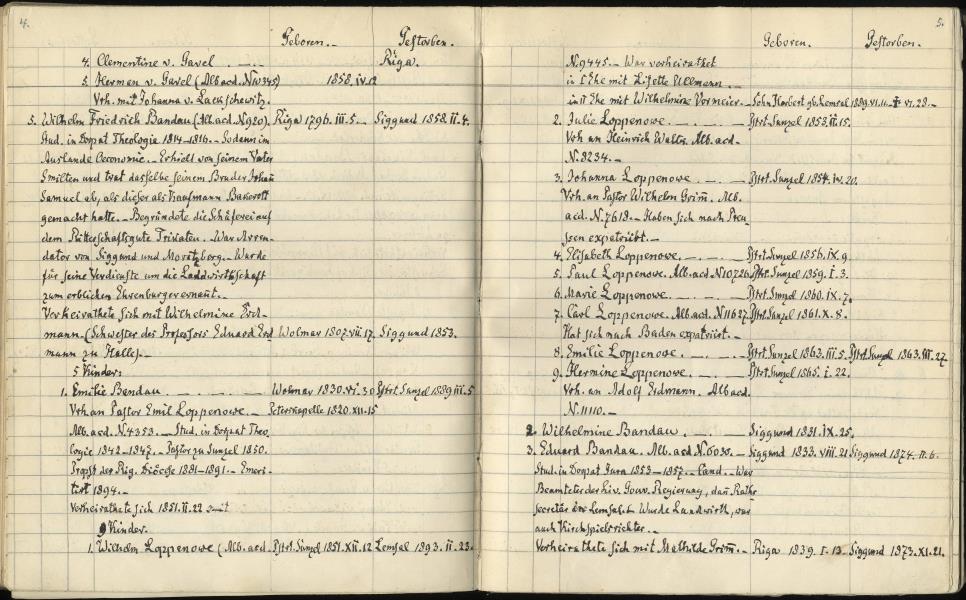 4.
Geboren.— Gestorben.
4. Clementine v. Gavel . —.— Riga.
5. Herman v. Gavel (Alb. acd. N 10345) 1858. IV. 12
Vrh. mit Johanna v. Lackschewitz.
3. Wilhelm Friedrich Bandau (Alb. acd. N 920). Riga 1796. III. 5.— Siggund 1858. II. 4.
Stud. in Dorpat Theologie 1814–1816.— Sodann im
Auslande Oeconomie.— Erhielt von seinem Vater
Smilten und trat dasselbe seinem Bruder Johan̄
Samuel ab, als dieser als Kaufmann Bankerott
gemacht hatte.— Begründete die Schäferei auf
dem Ritterschaftsgute Trikaten. War Arren-
dator von Siggund und Moritzberg.— Wurde
für seine Verdienste um die Landwirthschaft
zum erblichen Ehrenbürger ernan̄t.—
Verheirathete sich mit Wilhelmine Erd-
mann. (Schwester des Professors Eduard Erd Wolmar 1807. VII. 17. Siggund 1853.
mann zu Halle).—
5 Kinder:
1. Emilie Bandau . — . — . Wolmar 1830. VI. 30 Pstrt. Sunzel 1889. III. 5
Vrh. an Pastor Emil Loppenowe.— Peterskapelle 1820. XII. 15
Alb. acd. N. 4353.— Stud. in Dorpat Theo
logie 1842–1847.— Pastor zu Sunzel 1850.
Propst der Rig. Diöcese 1881–1891.— Emeri-
tirt 1894.—
Verheirathete sich 1851. II. 22 mit
9 Kinder.
1. Wilhelm Loppenowe (Alb. acd. Pstrt. Sunzel 1851. XII. 12 Lemsal 1893. II. 23.
5.
Geboren. Gestorben.
N. 9445.— War verheirathet
in I Ehe mit Lisette Ullmann
in II Ehe mit Wilhelmine Vormeier.— Sohn Herbert gb. Lemsal 1889. VI. 11.
2. Julie Loppenowe . — . — Pstrt. Sunzel 1853. II. 15.
Vrh. an Heinrich Walter. Alb. acd.
N. 8234.—
3. Johanna Loppenowe . — . — Pstrt. Sunzel 1854. IV. 20.
Vrh. an Pastor Wilhelm Grim̄. Alb.
acd. N. 7618.— Haben sich nach Preu
ssen expatriirt.—
4. Elisabeth Loppenowe. — . — Pstrt. Sunzel 1856. IX. 9.
5. Paul Loppenowe. Alb. acd. N 10726. Pstrt. Sunzel 1859. I. 3.
6. Marie Loppenowe. — . — . — Pstrt. Sunzel 1860. IX. 7.
7. Carl Loppenowe. Alb. acd. N 11627. Pstrt. Sunzel 1861. X. 8.
Hat sich nach Baden expatriirt.—
8. Emilie Loppenowe. — . — Pstrt. Sunzel 1863. III. 5. Pstrt. Sunzel 1863. III. 27.
9. Hermine Loppenowe. — Pstrt. Sunzel 1865. I. 22.
Vrh. an Adolf Erdmann. Alb. acd.
N. 11110.—
2. Wilhelmine Bandau . — . — Siggund 1831. IX. 25.
3. Eduard Bandau. Alb. acd. N. 6030.— Siggund 1833. VIII. 21 Siggund 1874. II. 6.
Stud. in Dorpat Jura 1853–1857.— Cand.— War
Beamteter der Liv. Gouv. Regierung, dan̄ Raths
secretär Lemsal. Wurde Landwirth, war
auch Kirchspielsrichter.—
Verheirathete sich mit Mathilde Grim̄.— Riga 1839. I. 13.— Siggund 1873. XI. 21.